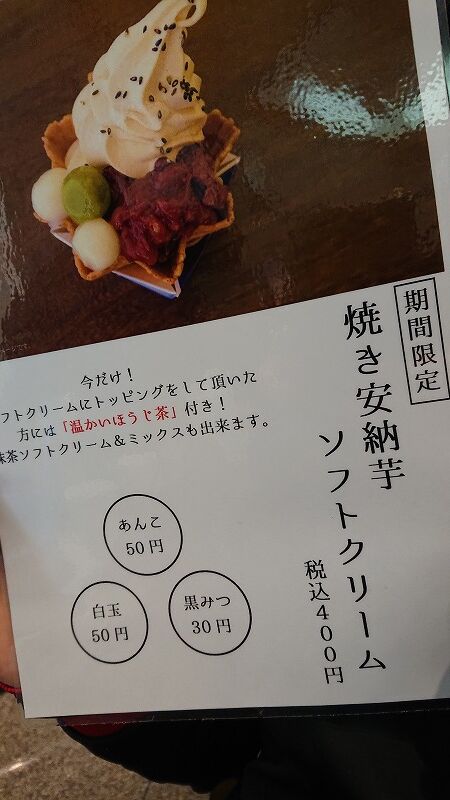 期間限定
焼き安納芋
ソフトクリーム
税込400円
今だけ！
フトクリームにトッピングをして頂いた
方には「温かいほうじ茶」付き！
抹茶ソフトクリーム＆ミックスも出来ます。
あんこ
50円
白玉
50円
黒みつ
30円